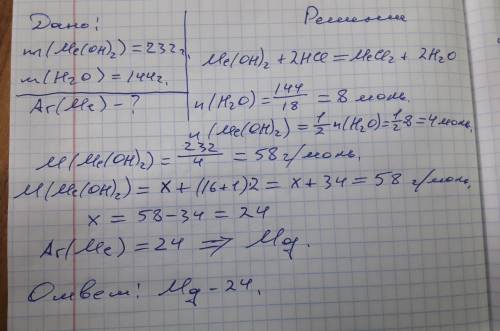 Дано:
m(Me(OH)₂)=232г.
m(H₂O)=144г.
Ar(Me)-?
Решение
Me(OH)₂+2HCl=MeCl₂+2H₂O
n(H₂O)=144/18=8 моль.
n(Me(OH)₂)=1/2 n(H₂O)=1/2·8=4моль.
M(Me(OH)₂)=232/4=58 г/моль.
M(Me(OH)₂)=x+(16+1)2=x+34=58 г/моль.
x=58-34=24
Ar(Me)=24 ⇒ Mg.
Ответ: Mg-24.